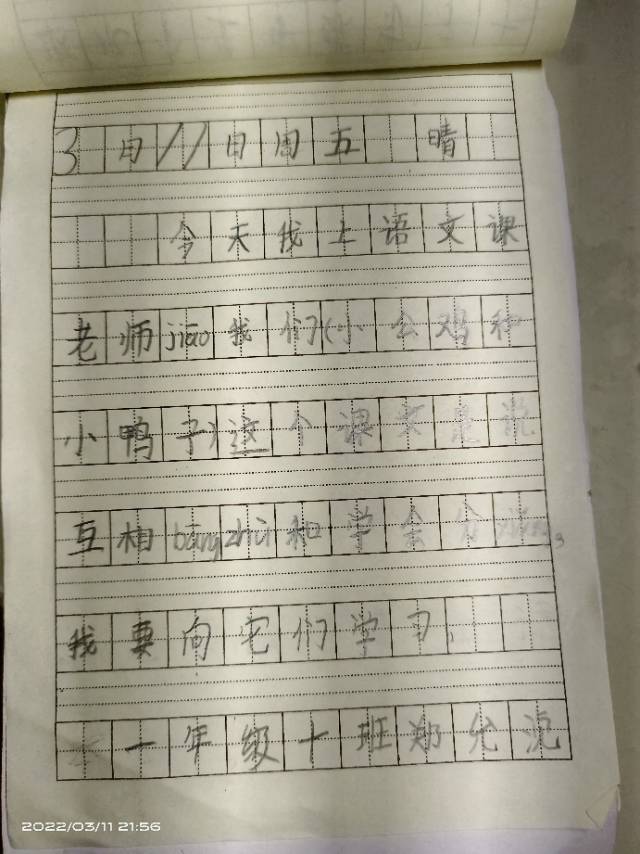 3月11日周五 晴
今天我上语文课
老师jiāo我们《小公鸡和
小鸭子》这个课文是说
互相bāngzhù和学会分
我要向它们学习。
一年级十班郑允
2022/03/11 21:56